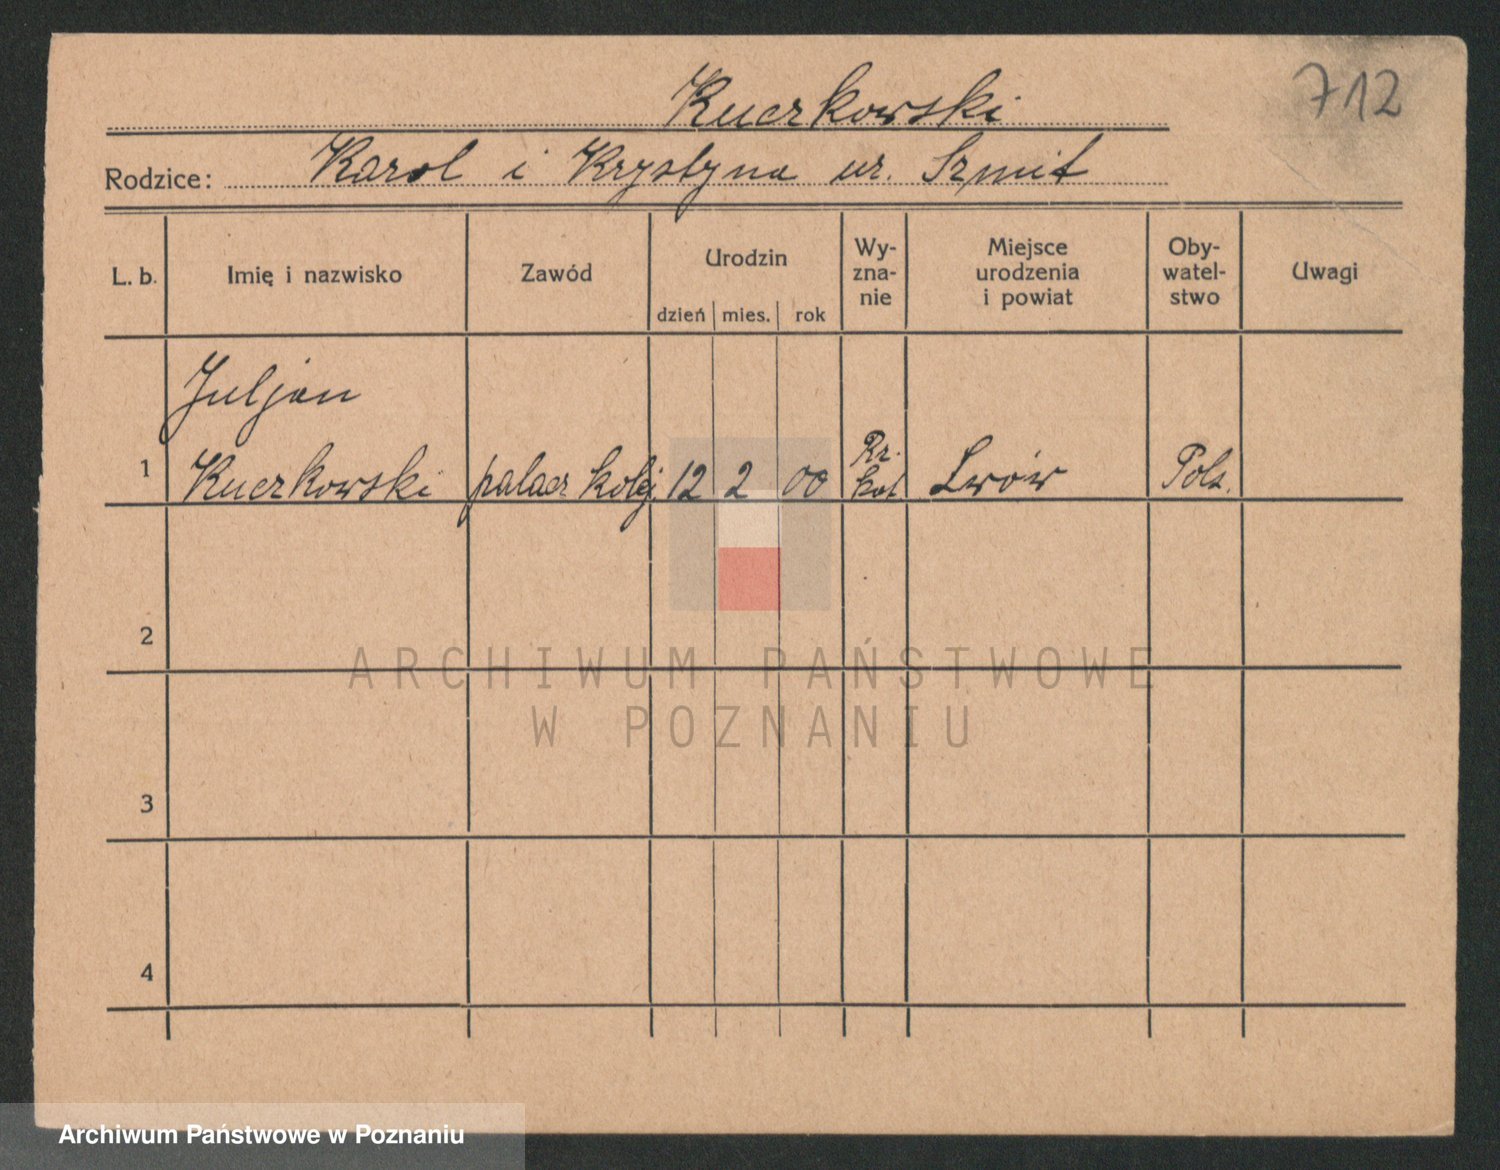 712
Kuczkowski
Rodzice: Karol i Krystyna ur. Szmit
L. b.
Imię i nazwisko
Zawód
Urodzin
dzień
mies.
rok
Wy-
zna-
nie
Miejsce
urodzenia
i powiat
Oby-
watel-
stwo
Uwagi
Juljan
1 Kuczkowski palacz kolej. 12 2 00 Rz. kat Lwów Pols.
2
3
4
ARCHIWUM PAŃSTWOWE
W POZNANIU
Archiwum Państwowe w Poznaniu